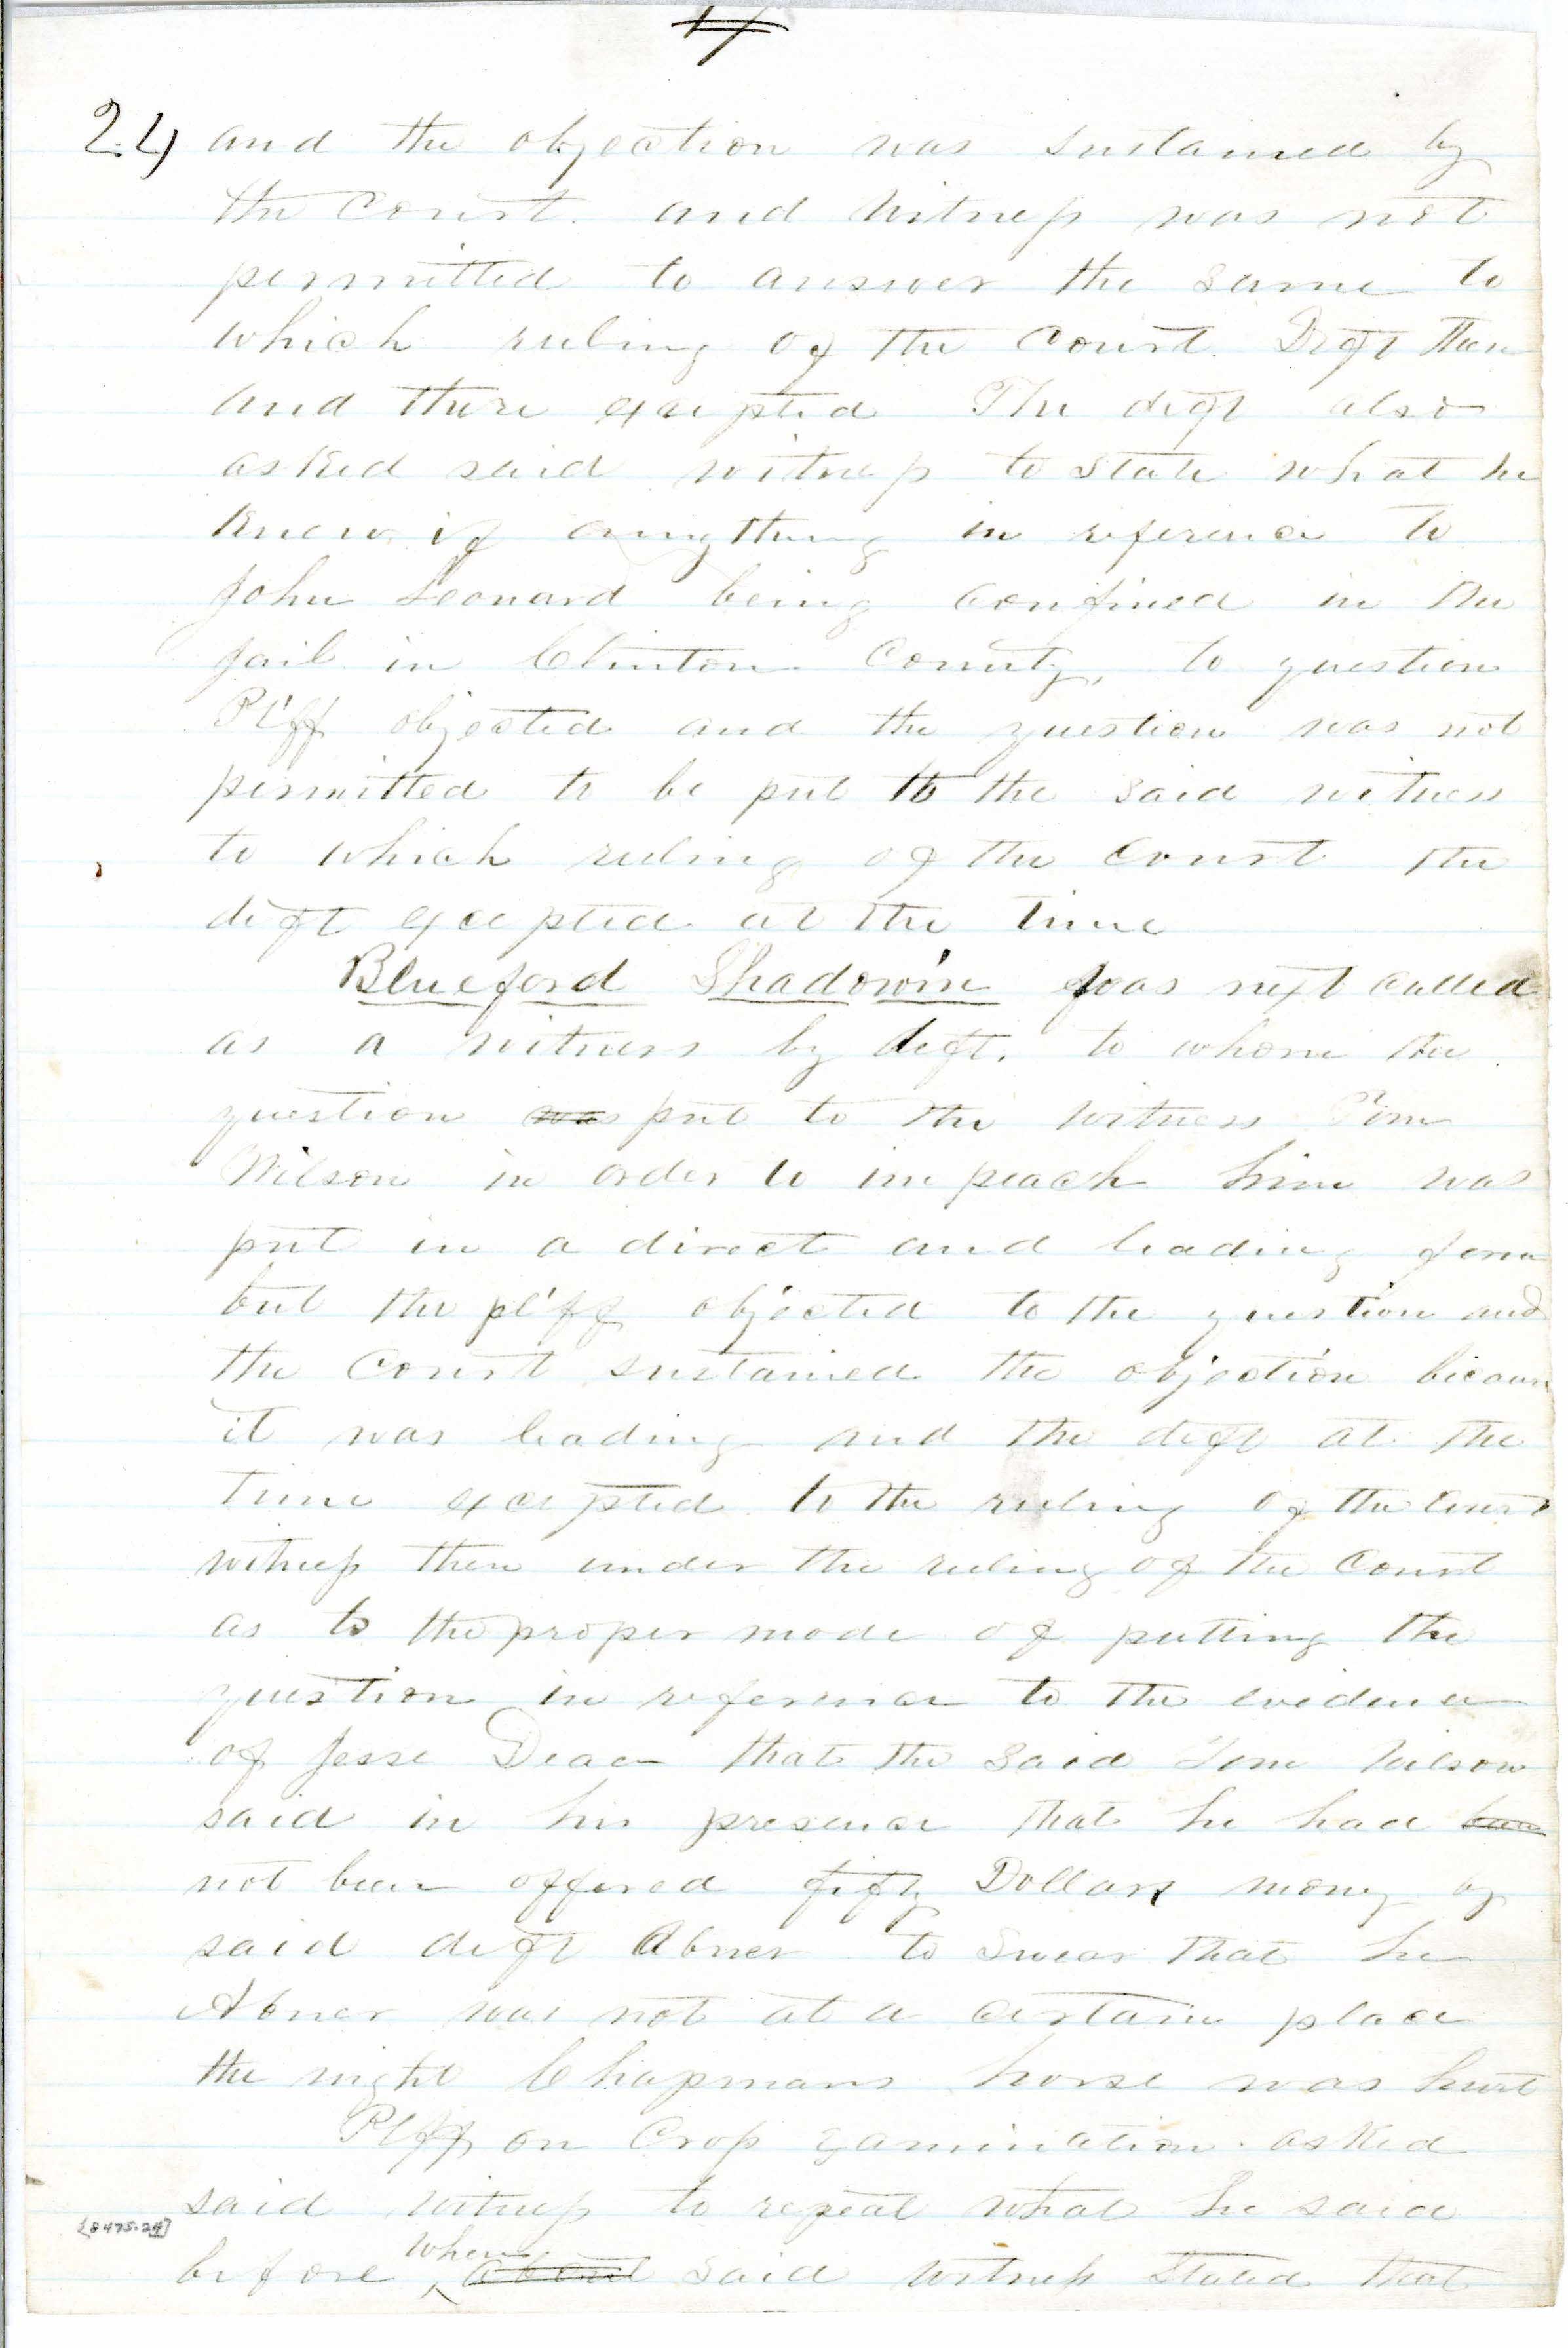 17
24 and the objection was sustained by
the Court. and witness was not
permitted to answer the same to
which ruling of the Court. Deft then
and there excepted The deft also
asked said witness to state what he
knew if anything in reference to
John Leonard being confined in the
jail in Clinton County, to question
Pl'ff objected and the question was not
permitted to be put to the said witness
to which ruling of the Court the
deft excepted at the time
Blueford Shadowin was next called
as a witness by deft. to whom the
question was put to the witness Tom
Wilson in order to impeach him was
put in a direct and leading form
but the pl'ff objected to the question and
the Court sustained the objection because
it was leading and the deft at the
time excepted to the ruling of the Court
witness then under the ruling of the Court
as to the proper mode of putting the
question in reference to the evidence
of Jesse Deace that the said Tom Wilson
said in his presence that he had been
not been offered fifty Dollars money by
said deft Abner to swear that he
Abner was not at a certain place
the night Chapmans horse was hurt
Plff on Cross examination. asked
said witness to repeat what he said
before when about said witness stated that
[8475.24]